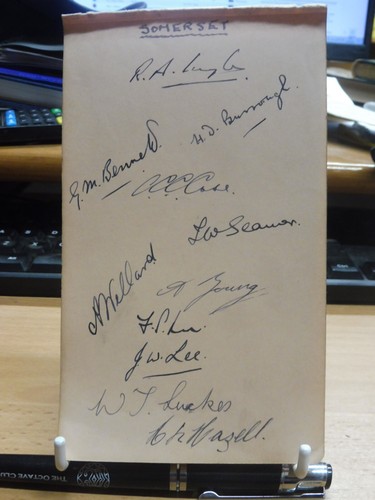 SOMERSET
R. A. Ingle
H. D. Burrough.
G. M. Bennett.
C C C Case.
L W Seamer.
A Wellard
A Young.
F. S. Lee.
J. W. Lee.
W T Luckes
H L Hazell.
THE OCTAVE CLUB